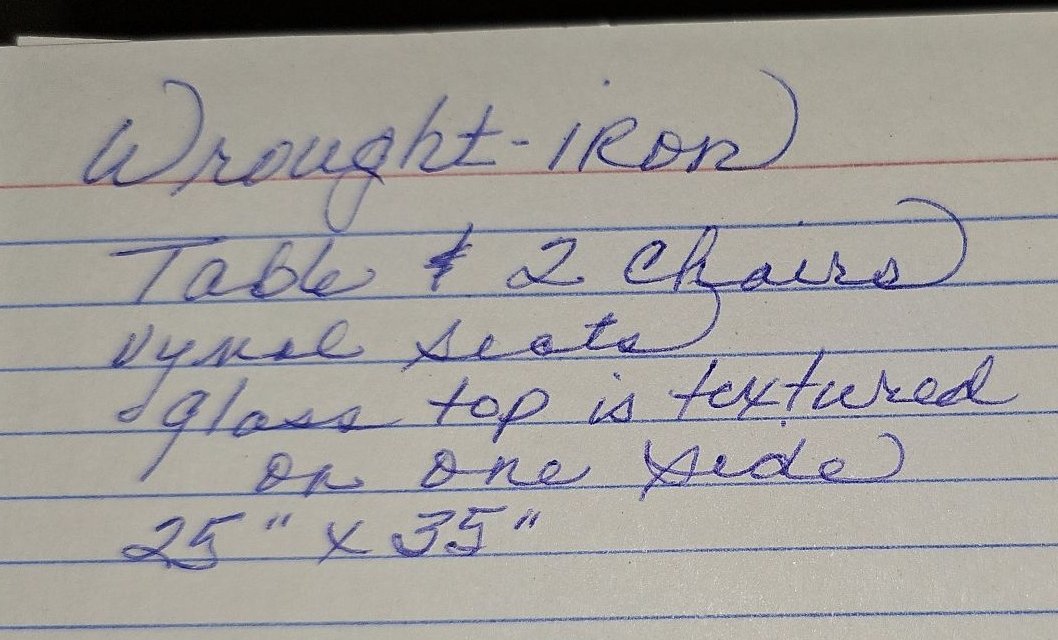 Wrought-iron
Table & 2 Chairs
Vynal seats
glass top is textured
on one side
25" x 35"